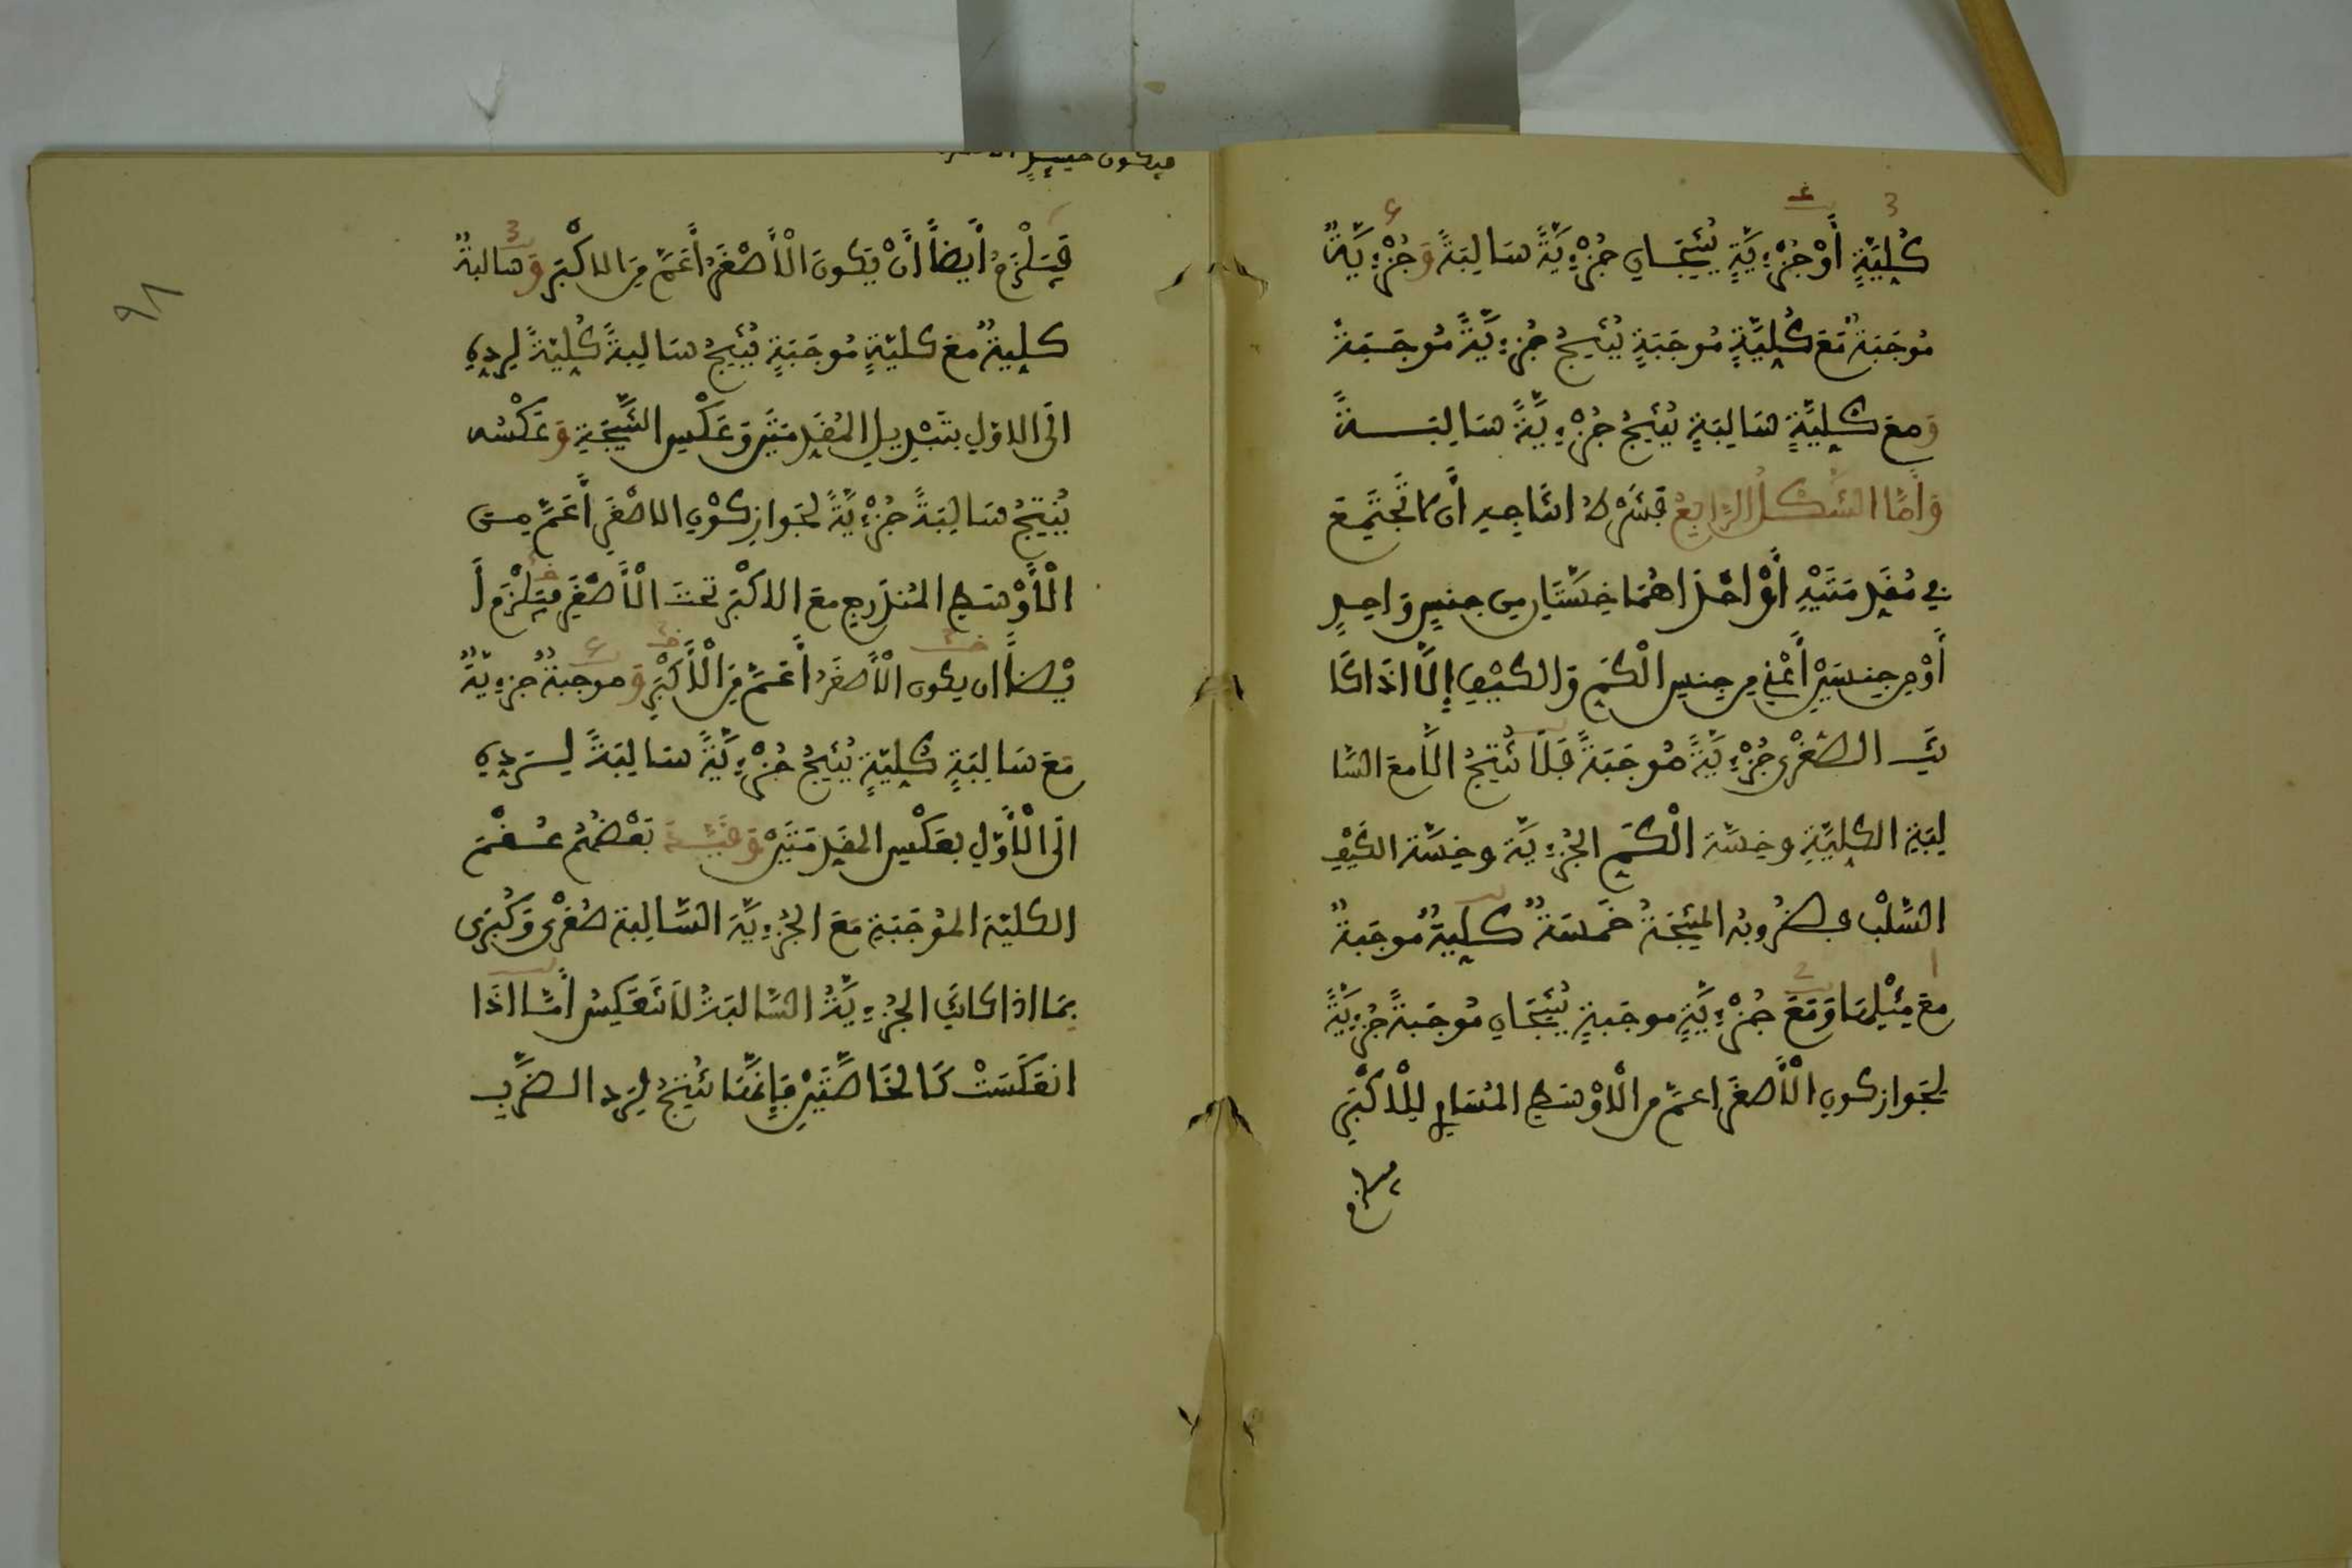 كُلِيَّةٍ أَوْ جُزْءِيَّةٍ يُنْتِجَانِ جُزْءِيَّةً سَالِبَةً وَجُزْءِيَّةٌ
مُوجَبَةٌ مَعَ كُلِيَّةٍ مُوجَبَةٍ يُنْتِجُ جُزْءِيَّةً مُوجَبَةً
وَمع كُلِيَّةٍ سَالِبَةٍ يُنْتِجُ جُزْءِيَّةً سَالِبَةً
وَأَمَّا الشَّكْلُ الرَّابِعُ فَشَرْطُ انتَاجِهِ أَن لا تَجْتَمِعَ
فِي مُقَدِّمَتَيْهِ أَوْ احْدَاهُمَا خِسَّتَانِ مِن جِنسٍ وَاحِدٍ
أَوْ مِن جِنسَيْنِ أَعْنِي مِن جِنسِ الْكَمِّ وَالكَيْفِ إِلاَّ اذَا كَا
نَتِ الصُّغْرَى جُزْءِيَّةً مُوجَبَةً فَلاَ تُنْتِجُ الاَّ مَعَ السَّا
لِبَةِ الكلِيَّةِ وخِسَّة الْكَمِّ الجُزْءِيَّة وخِسَّة الكَيْفِ
السَّلْب فضُرُوبُه المنتِجَةُ خَمْسَةٌ كلِيَّةٌ مُوجَبَةٌ
مَعَ مِثْلِهَا وَمَعَ جُزْءِيَّةٍ موجَبةٍ يُنْتِجَانِ مُوجَبةً جُزْءِيَّةً
لِجَوَازِ كَونِ الْأَصغَرِ اعمَّ مِن الْاوْسَطِ المُسَاوِي لِلْاكْبَرِ
فيلزم
فَيَلْزَمُ أَيضاً أَنْ يَكُونَ الْأَصْغَرُ أَعَمَّ مِنَ الاكْبَرِ وَسالبةٌ
كلِيةٌ مَعَ كليَّةٍ مُوجَبَةٍ يُنْتِجُ سَالِبةً كُلِيَّةً لِرَدِّهِ
الَى الاوّلِ بتَبْدِيلِ المُقَدِّمَتَيْنِ وَعَكْسِ النَّتِيجَةِ وَعَكْسُه
يُنْتِجُ سَالِبَةً جُزْءِيَّةً لِجَوازِ كَوْنِ الاصْغَرِ أَعَمَّ مِن
الْأَوْسَطِ المُندَرِجِ مَعَ الاكْبَرِ تحتَ الْأَصْغَرِ فيَلْزَمُ أَ
يْضاً ان يكون الْأَصغَرُ أَعَمَّ مِنَ الْأَكْبَرِ وَموجبَةٌ جزءِيَّةٌ
مَعَ سَالِبَةٍ كُلِيَّةٍ يُنْتِجُ جُزْءِيَّةً سَالِبَةً لِرَدِّهِ
الَى الْأَوَّلِ بعَكْسِ المقَدِّمَتَيْنِ بَعْضُهُمْ عُقْمَ
الكليّة المُوجَبَةِ مَعَ الجُزْءِيَّة السَّالِبَة صُغْرَى وَكُبْرَى
بِمَا اذا كانَتِ الجُزْءِيَّةُ السَّالبَةُ لاَ تَنعَكِسُ أَمَّا اذَا
انعَكَسَتْ كَالخَاصَّتَيْنِ فَإِنَّهَا تُنْتِجُ لِرَدِّ الضَّرْبِ
٩٨